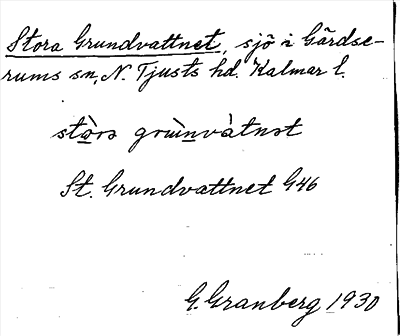 Stora Grundvattnet, sjö i Gärdse-
rums sn, N. Tjusts hd. Kalmar l.
stòra grùnvàtnət
St. Grundvattnet G46
G. Granberg 1930